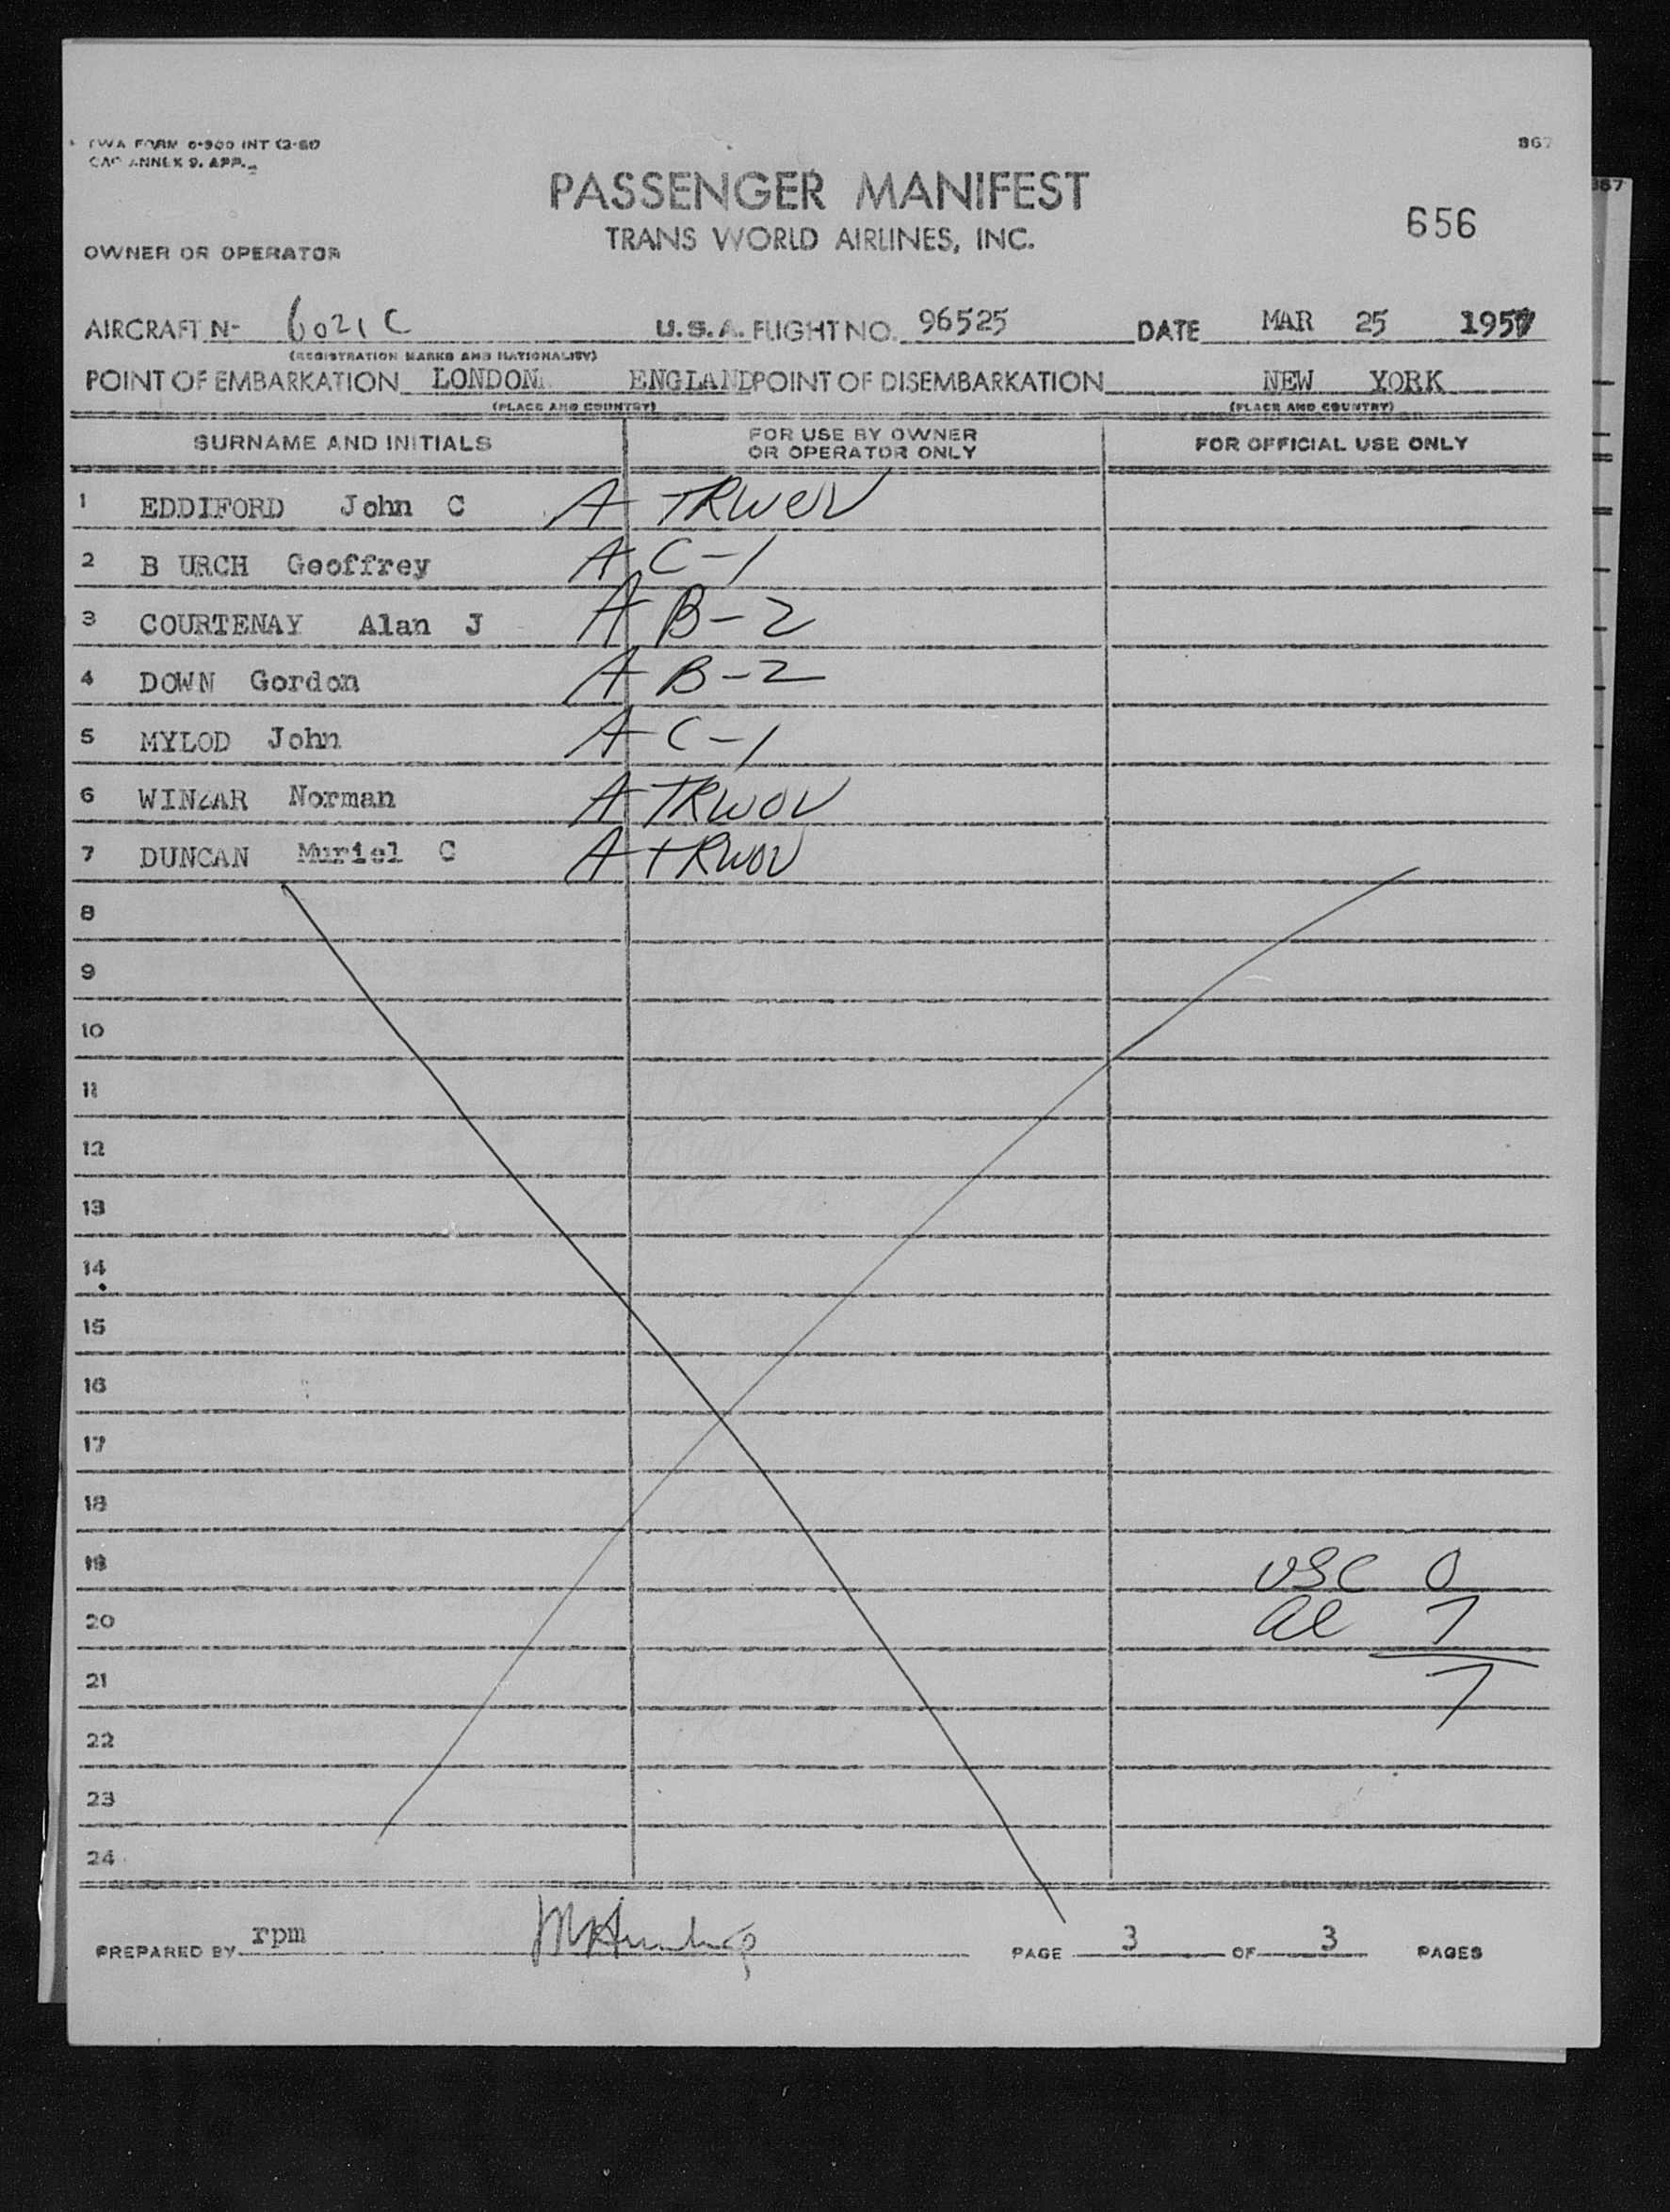 TWA FORM 0-900 INT (2-51)
CAO ANNEX 9. APP. 2
867
PASSENGER MANIFEST
TRANS WORLD AIRLINES, INC.
656
OWNER OR OPERATOR
AIRCRAFT N- 6021C U.S.A. FLIGHT NO. 96525 DATE MAR 25 1957
(REGISTRATION MARKS AND NATIONALITY)
POINT OF EMBARKATION LONDON ENGLAND POINT OF DISEMBARKATION NEW YORK
(PLACE AND COUNTRY) (PLACE AND COUNTRY)
SURNAME AND INITIALS FOR USE BY OWNER OR OPERATOR ONLY FOR OFFICIAL USE ONLY
1 EDDIFORD John C A TRWOV
2 B URCH Geoffrey A C-1
3 COURTENAY Alan J A B-2
4 DOWN Gordon A B-2
5 MYLOD John A C-1
6 WINZAR Norman A TRWOV
7 DUNCAN Muriel C A TRWOV
8
9
10
11
12
13
14
15
16
17
18
19 USC 0
20 al 7
21 7
22
23
24
PREPARED BY rpm PAGE 3 OF 3 PAGES